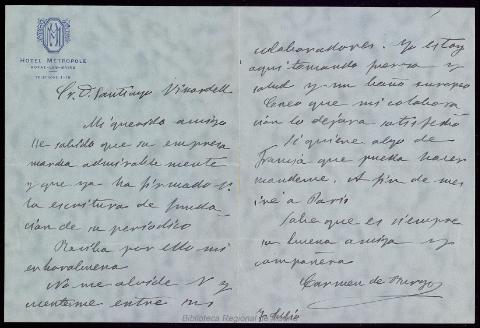 HOTEL METROPOLE
ROYAT-LES-BAINS
TÉLÉPHONE
Sr. D. Santiago Vinardell
Mi querido amigo
He sabido que su empresa
marcha admirablemente
y que ya ha firmado
la escritura de funda-
ción de su periodico
Reciba por ello mi
enhorabuena
No me olvide V y
cuenteme entre sus
colaboradores. Yo estoy
aqui tomando fuerza y
salud y un baño
Creo que mi colabora
ción lo dejara satisfecho
Si quiere algo de
Francia que pueda hacer
mandeme. A fin de mes
iré a Paris
Sabe que es siempre
su buena amiga y
compañera
Carmen de Burgos
Julio
Biblioteca Regional de Madrid